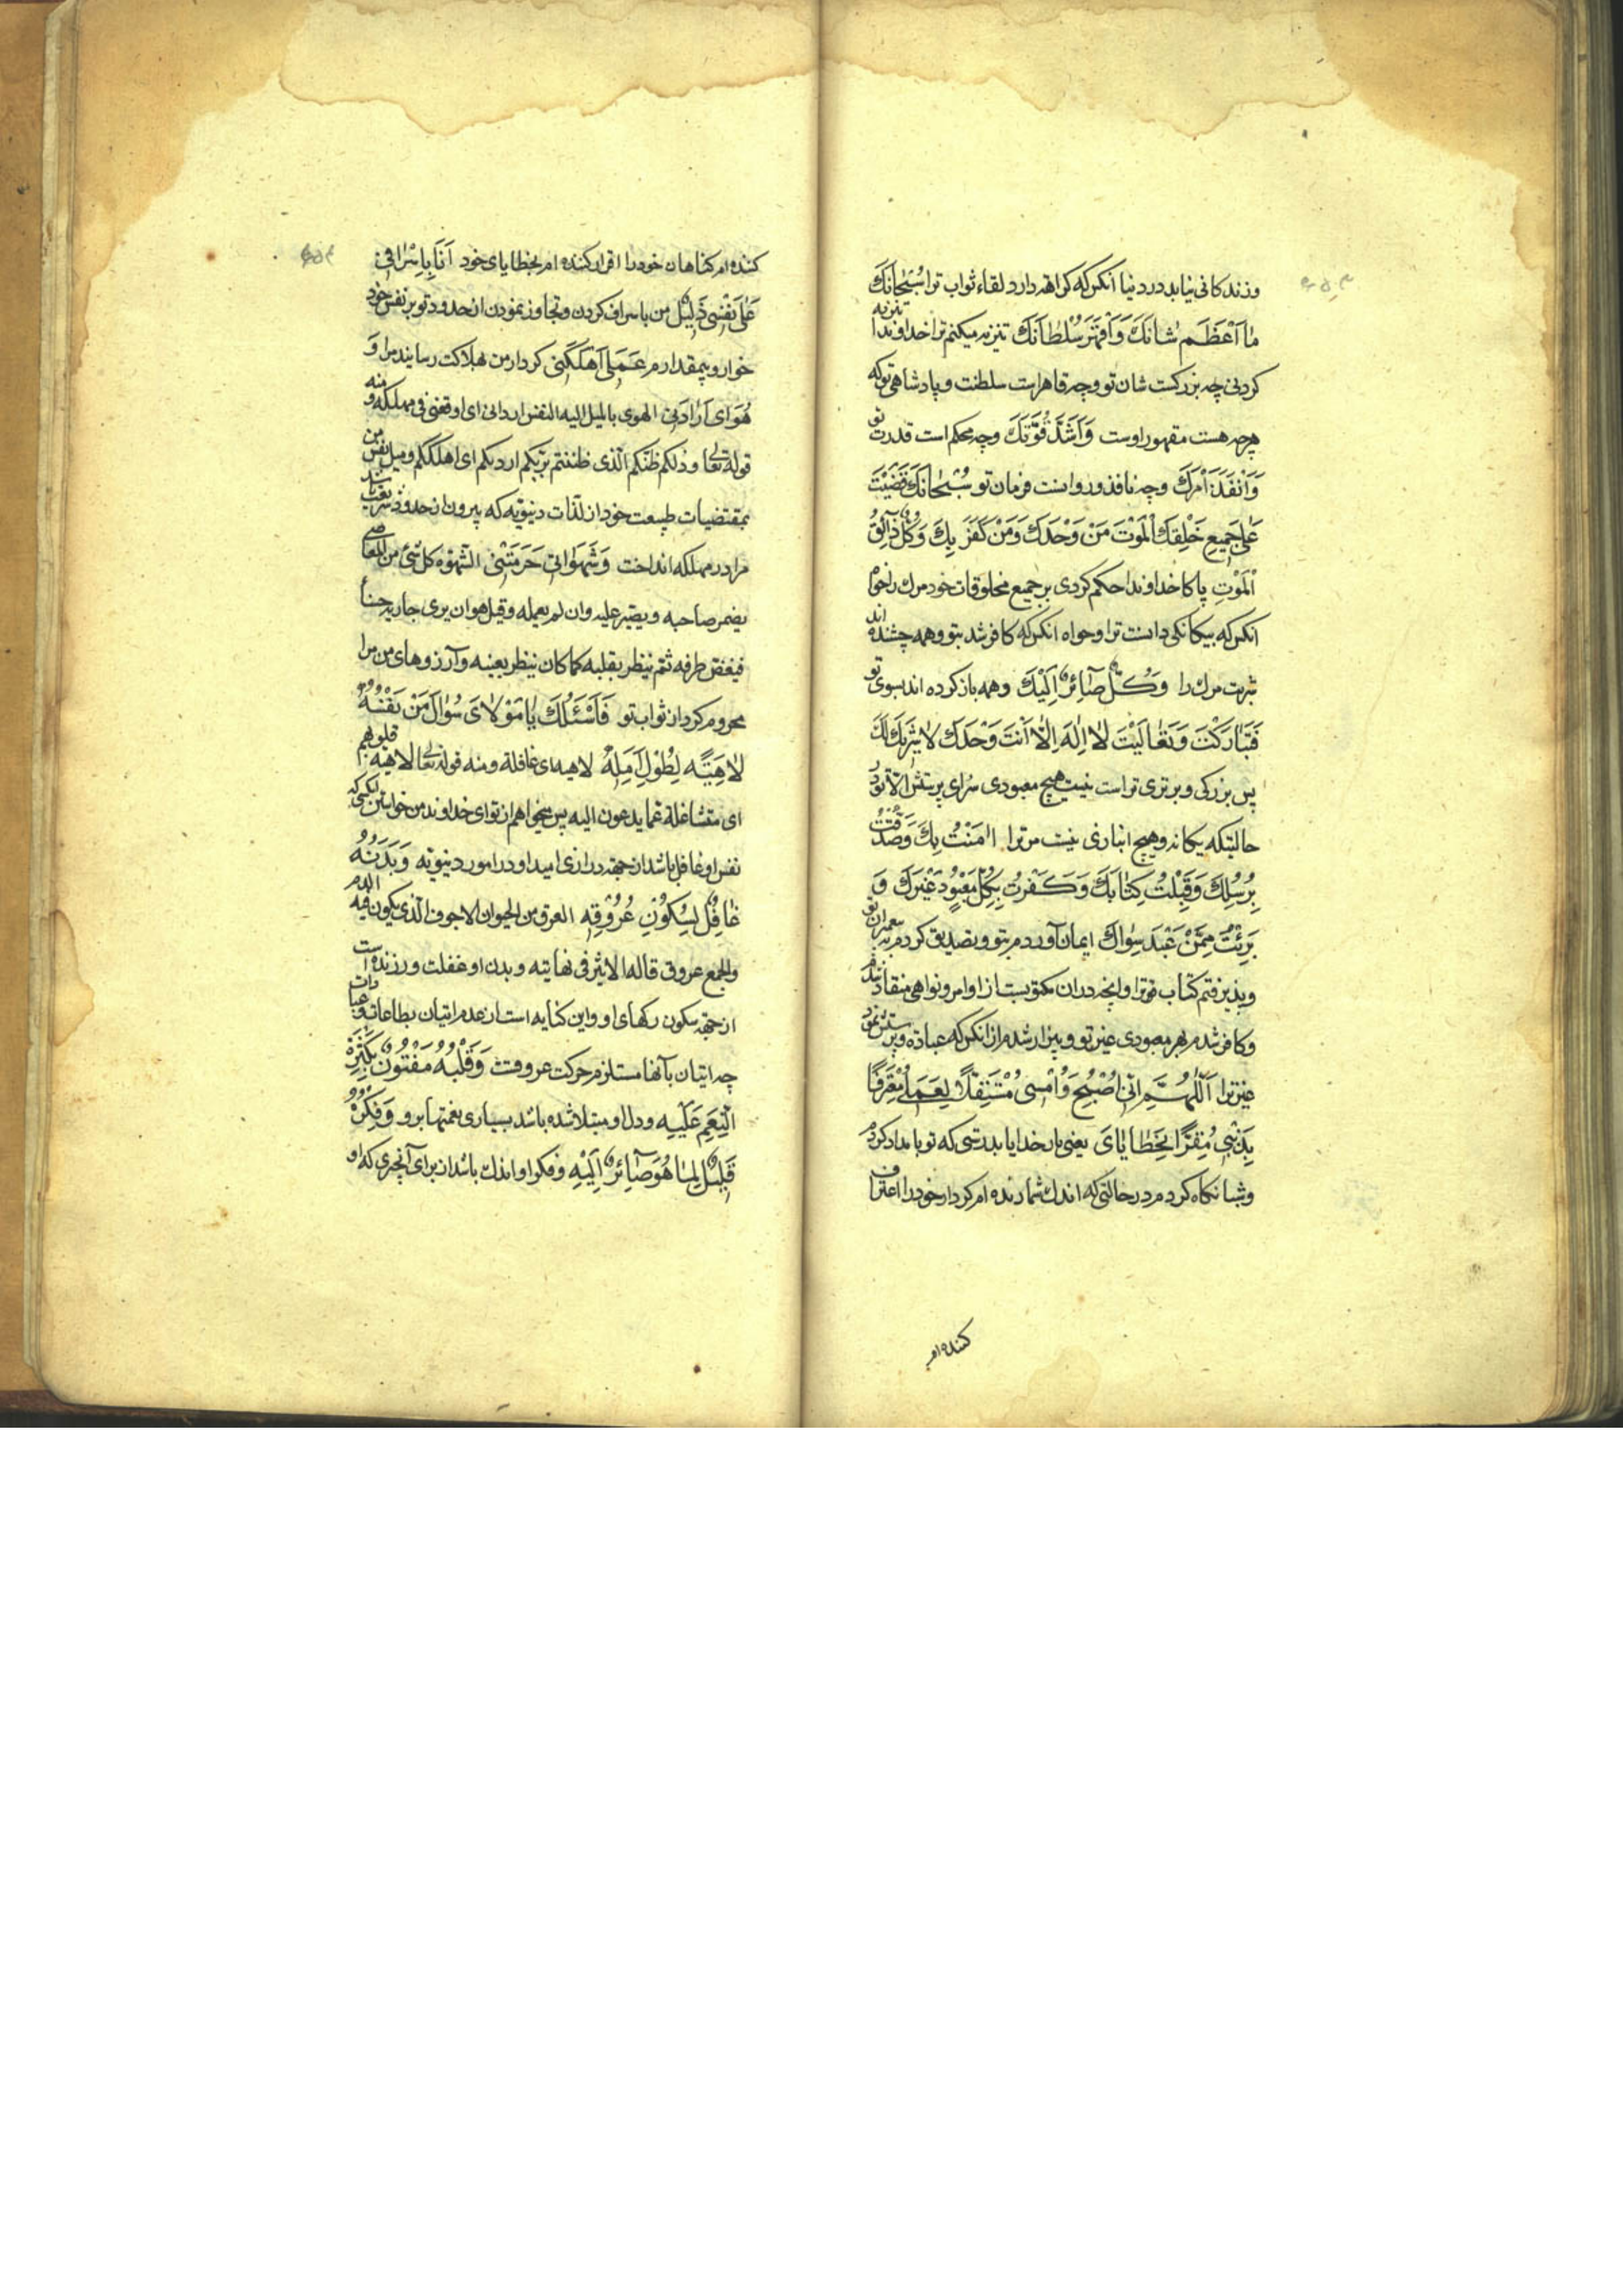 وزندکانی نیابد در دنیا آنکس که کراهه دارد لقاء ثواب ترا سُبْحانَكَ
ما اَعْظَمَ شانَكَ وَ اَقْهَرَ سُلْطانَكَ تنزیه میکنم ترا خداوندا تنزیه
کردنی چه بزرکست شان تو وچه قاهر است سلطنت و پادشاهی تو که
هرچه هست مقهور اوست وَ اَشَدَّ قُوَّتَكَ وچه محکم است قدرت تو
وَ اَنْفَذَ اَمْرَكَ وچه نافذ ورواست فرمان تو سُبْحانَكَ قَضَیْتَ
عَلی جَمیعِ خَلْقِكَ الْمَوْتَ مَنْ وَحَّدَكَ وَمَنْ كَفَرَ بِكَ وَكُلٌّ ذآئِقُ
الْمَوْتِ پاکا خداوندا حکم کردی بر جمیع مخلوقات خود مرك را خواه
آنکس که بیکانکی دانست ترا وخواه آنکس که کافر شد بتو وهمه چشنده اند
شربت مرك را وَكُلٌّ صآئِرٌ اِلَیْكَ وهمه باز کرده اند بسوی تو
فَتَبارَكْتَ وَتَعالَیْتَ لا اِلهَ اِلّا اَنْتَ وَحْدَكَ لا شَریكَ لَكَ
پس بزرکی وبرتری تراست نیست هیچ معبودی سزای پرستش الا تو در
حالتیکه یکانه وهیچ انبازی نیست مر ترا امَنْتُ بِكَ وَصَدَّقْتُ
بِرُسُلِكَ وَقَبِلْتُ كِتابَكَ وَكَفَرْتُ بِكُلِّ مَعْبُودٍ غَیْرِكَ وَ
بَرِئْتُ مِمَّنْ عَبَدَ سِواكَ ایمان آوردم بتو وتصدیق کردم به پیغمبران تو
وپذیرفتم کتاب تو ترا وآنچه در آن مکتوبست از اوامر ونواهی منقاد شدم
وکافر شدم بهر معبودی غیر تو وبیزار شدم از آنکس که عباده وپرستش نمود
غیر ترا اَللّهُمَّ اِنّی اُصْبِحُ وَ اُمْسی مُسْتَقِلّاً لِعَمَلی مُعْتَرِفًا
بِذَنْبی مُقِرًّا بِخَطایایَ یعنی بار خدایا بدرستی که تو بامداد کردم
وشبانکاه کردم در حالتی که اندك شمارنده ام کردار خود را اعتراف
کننده ام
کننده ام کناهان خود را اقرار کننده ام بخطایای خود اَنَا بِاِسْرافی
عَلی نَفْسی ذَلیلٌ من باسراف کردن وتجاوز نمودن از حدود تو بر نفس خود
خوار وبیمقدارم عَمَلی اَهْلَكَنی کردار من بهلاکت رسانید مرا وَ
هَوایَ اَرْدانی الهوی بالمیل الیه النفس اردانی ای اوقعنی فی مهلکه ومنه
قوله تعالی وذلکم ظنکم الّذی ظننتم بربّکم اردیکم ای اهلککم ومیل نفس من
بمقتضیات طبیعت خود از لذّات دنیویّه که بیرون از حدود شریعت باشد
مرا در مهلکه انداخت وَشَهَواتی حَرَمَتْنی الشهوه کل شیء من المعاصی
یضمر صاحبه ویصیر علیه وان لم یعمله وقیل هو ان یری جاریه حسنا
فیغض طرفه ثم ینظر بقلبه کما کان ینظر بعینه وآرزوهای من مرا
محروم کرد از ثواب تو فَاَسْئَلُكَ یا مَوْلایَ سُؤالَ مَنْ نَفْسُهُ
لاهِیَةٌ لِطُولِ اَمَلِهِ لاهیه ای غافله ومنه قوله تعالی لاهیه قلوبهم
ای متشاغلة عما یدعون الیه پس میخواهم از تو ای خداوند من خواستن آنکسی که
نفس او غافل باشد از جهة درازی امید او در امور دنیویّه وَبَدَنُهُ
غافِلٌ لِسُكُونِ عُرُوقِهِ العرق من الحیوان الاجوف الّذی یکون فیه الدم
والجمع عروق قاله الاثیر فی نهایته وبدن او غفلت ورزنده است
از جهة سکون رکهای او واین کنایه است از عدم اتیان بطاعات وعبادات
چه اتیان بآنها مستلزم حرکت عروقست وَقَلْبُهُ مَفْتُونٌ بِكَثْرَةِ
النِّعَمِ عَلَیْهِ ودل او مبتلا شده باشد بسیاری نعمتها برو وَفِكْرُهُ
قَلیلٌ لِما هُوَ صآئِرٌ اِلَیْهِ وفکر او اندك باشد از برای آنچیزی که او